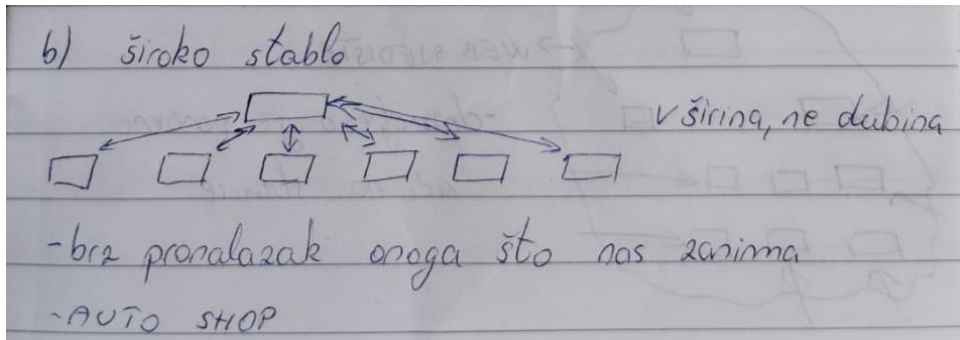 b) široko stablo
v širina, ne dubina
-brz pronalazak onoga što nas zanima
-AUTO SHOP